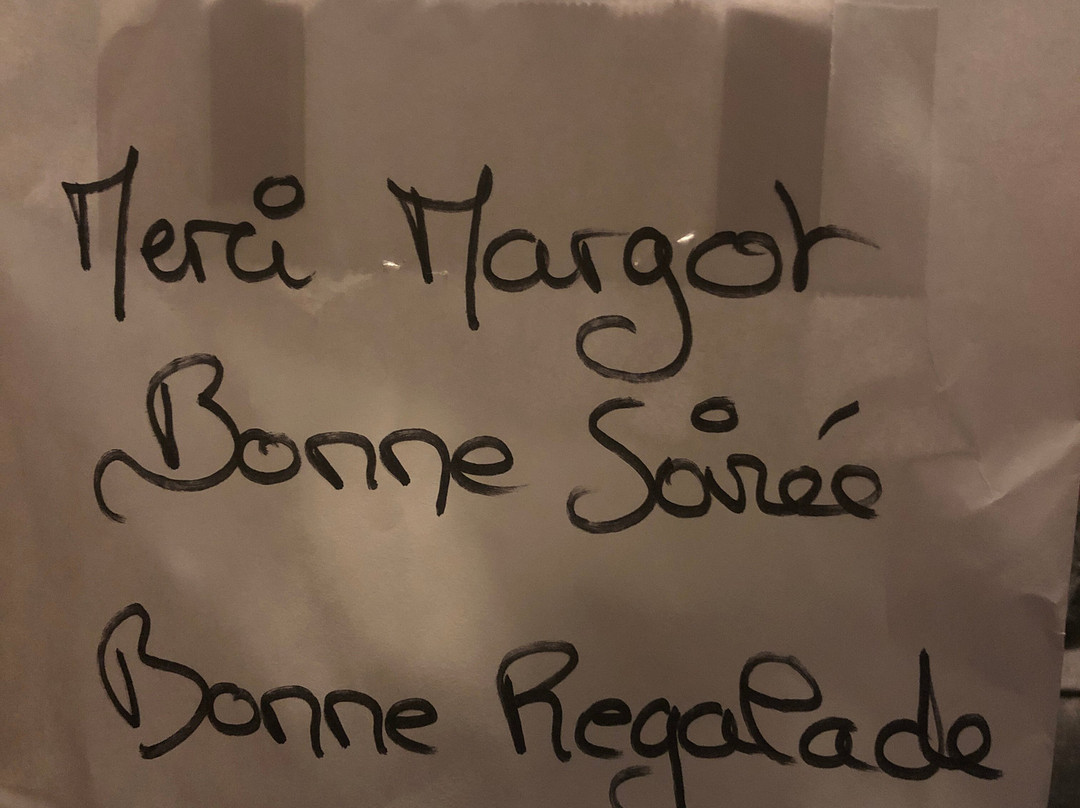 Merci Margot
Bonne Soirée
Bonne Regalade